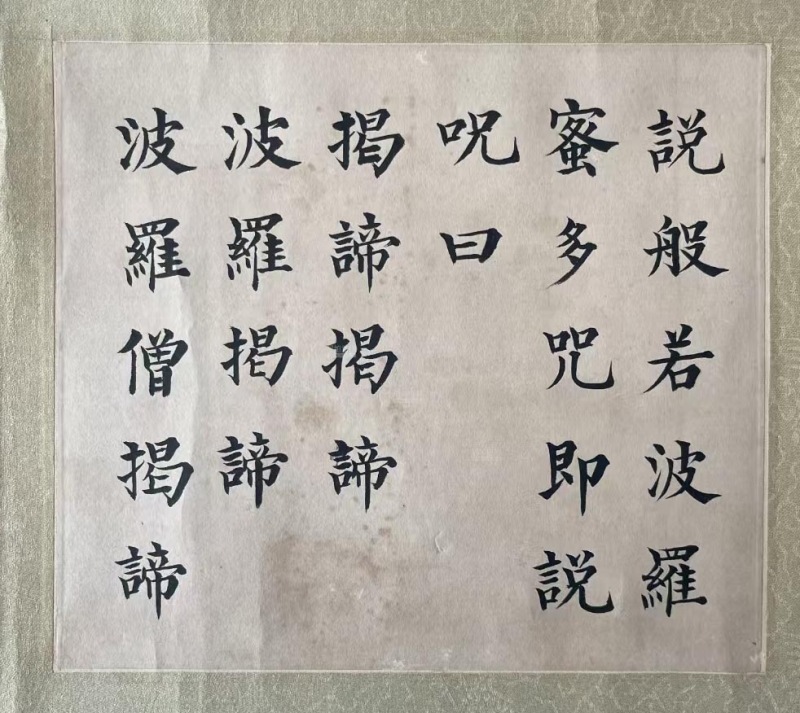 說般若波羅
蜜多咒即說
呪曰
揭諦揭諦
波羅揭諦
波羅僧揭諦